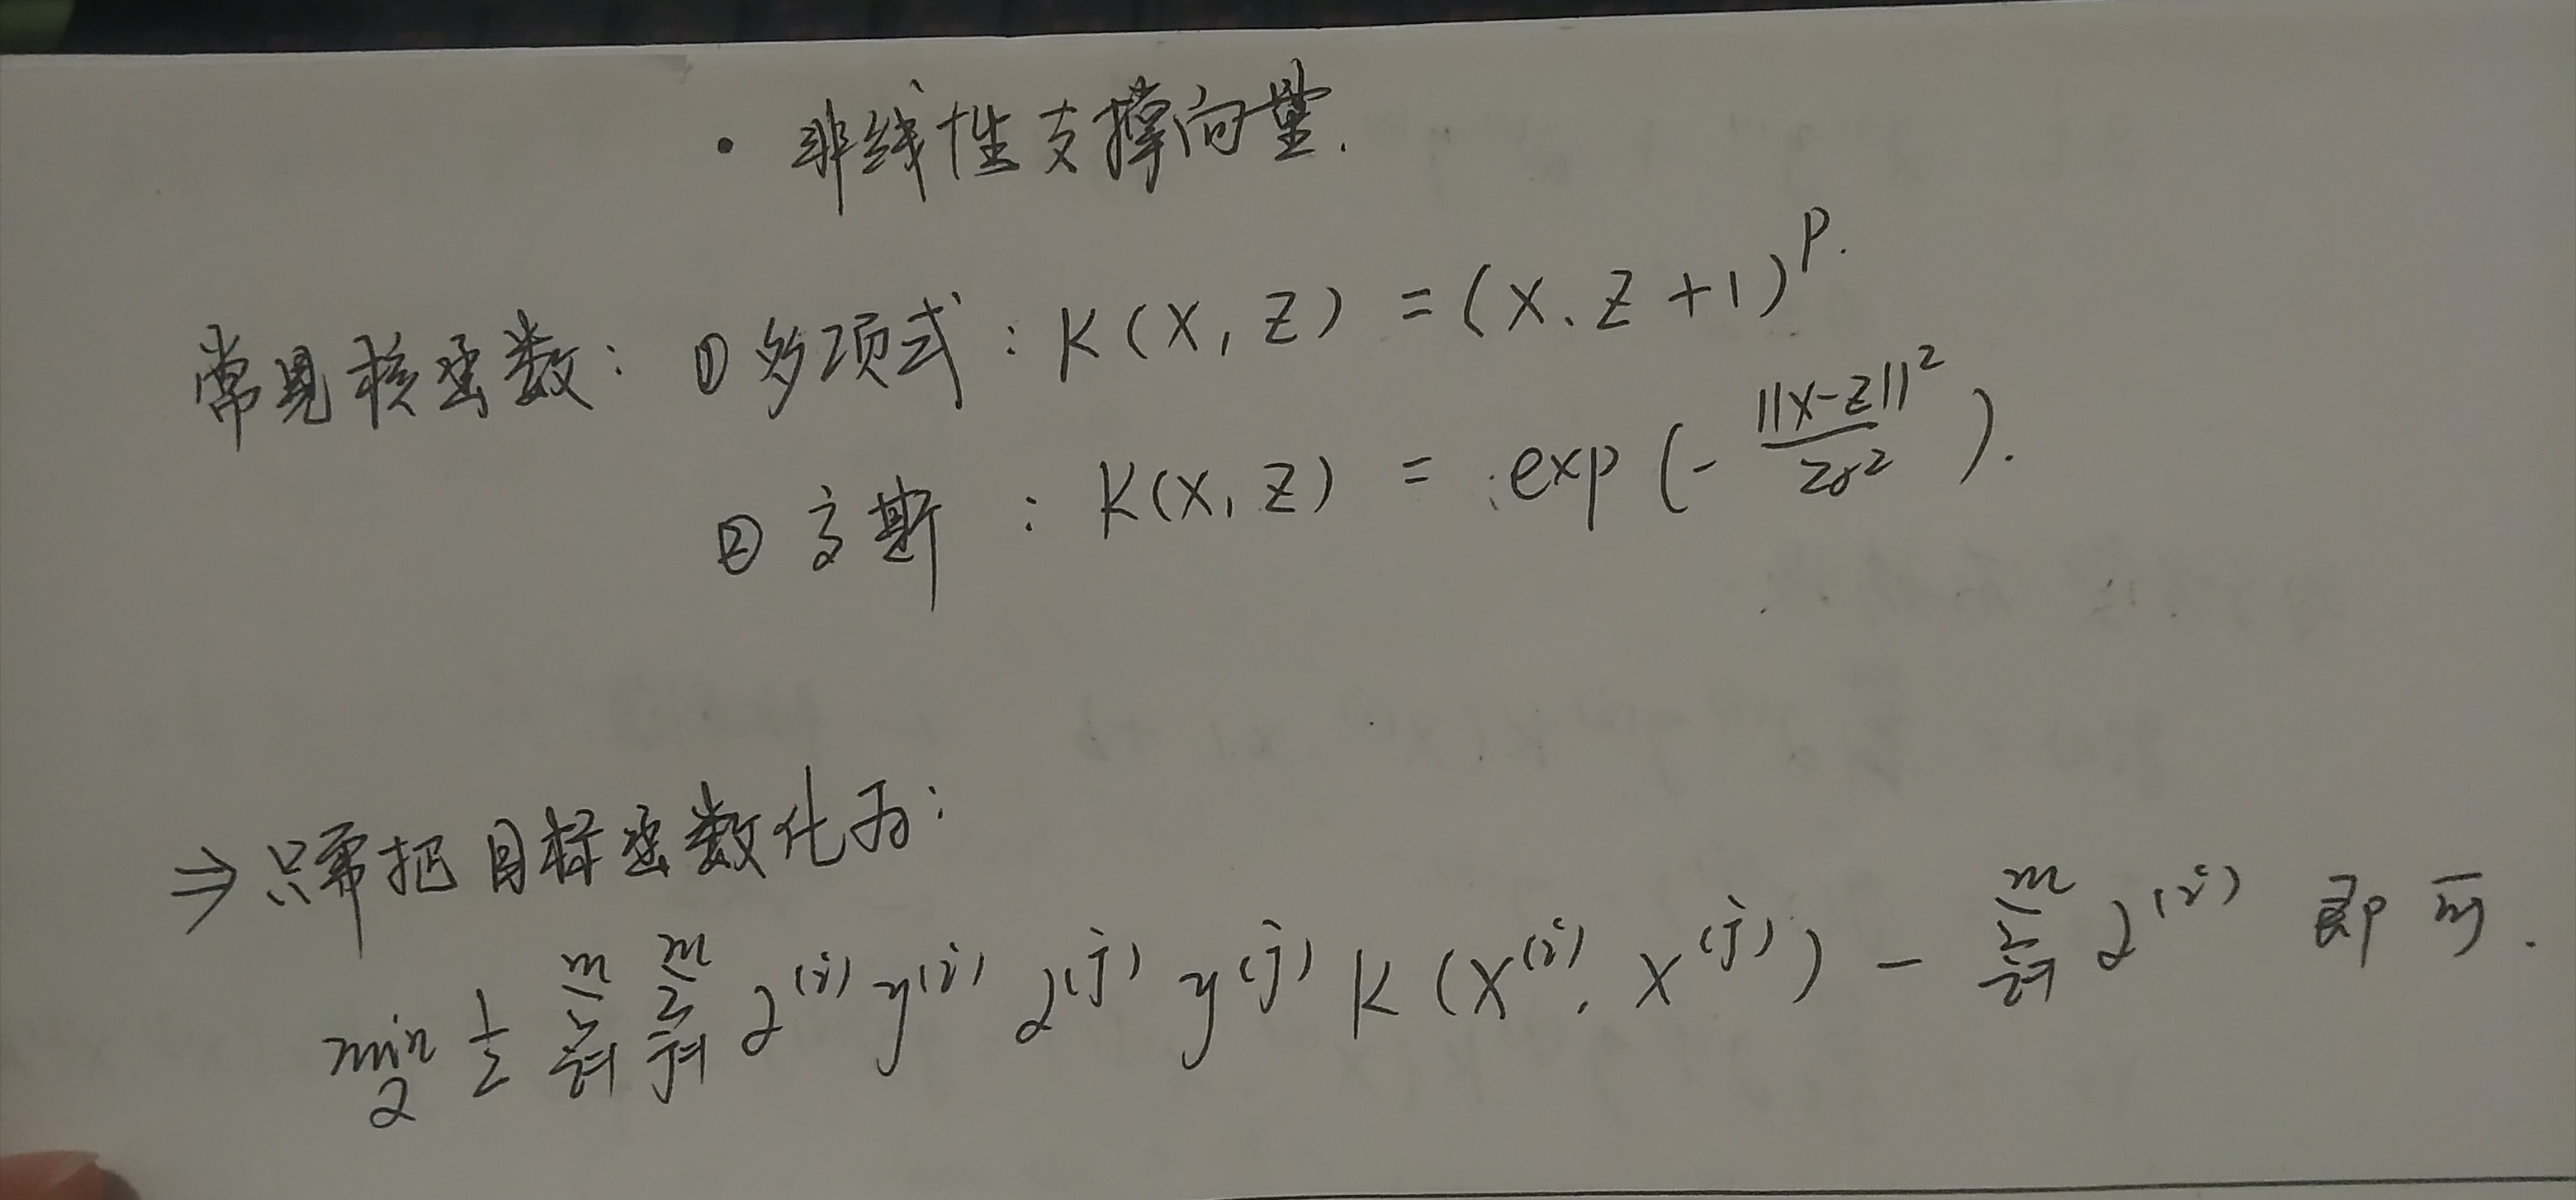 · 非线性支撑向量.
常见核函数: ① 多项式: K(x, z) = (x·z+1)^p.
② 高斯: K(x, z) = exp(-||x-z||²/2σ²).
⇒ 只需把目标函数化为:
min_α 1/2 Σ_{i=1}^m Σ_{j=1}^m α^(i) y^(i) α^(j) y^(j) K(x^(i), x^(j)) - Σ_{i=1}^m α^(i) 即可.